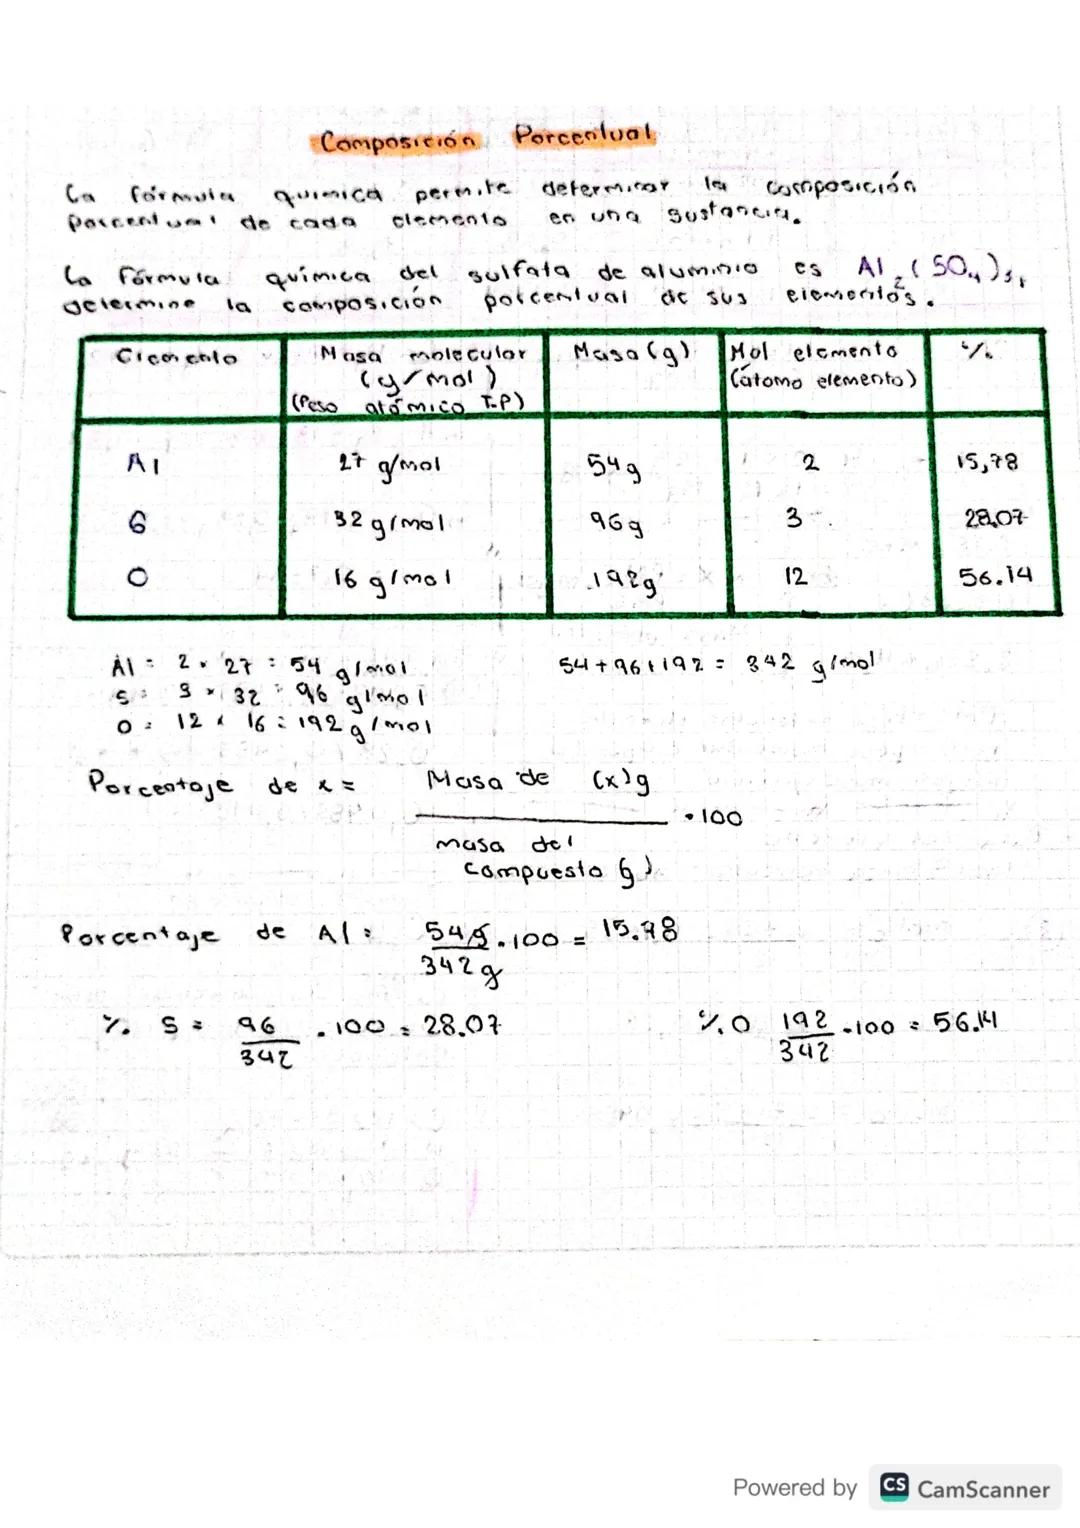 Composición Porcentual
La fórmula química permite determinar la composición
porcentual de cada elemento en una sustancia.
La fórmula química del sulfato de aluminio es Al₂(SO₄)₃,
determine la composición porcentual de sus elementos.
Elemento
Masa molecular (g/mol) (Peso atómico T.P)
Masa (g)
Mol elemento (átomo elemento)
%
Al 27 g/mol 54g 2 15,78
S 32 g/mol 96g 3 28.07
O 16 g/mol 192g 12 56.14
Al = 2 × 27 = 54 g/mol
S = 3 × 32 = 96 g/mol
O = 12 × 16 = 192 g/mol
54+96+192 = 342 g/mol
Porcentaje de x = Masa de (x)g
masa del
compuesto (g)
• 100
Porcentaje de Al = 54g . 100 = 15.78
342g
% S = 96 . 100 = 28.07
342
% O 192 . 100 = 56.14
342
Powered by CS CamScanner